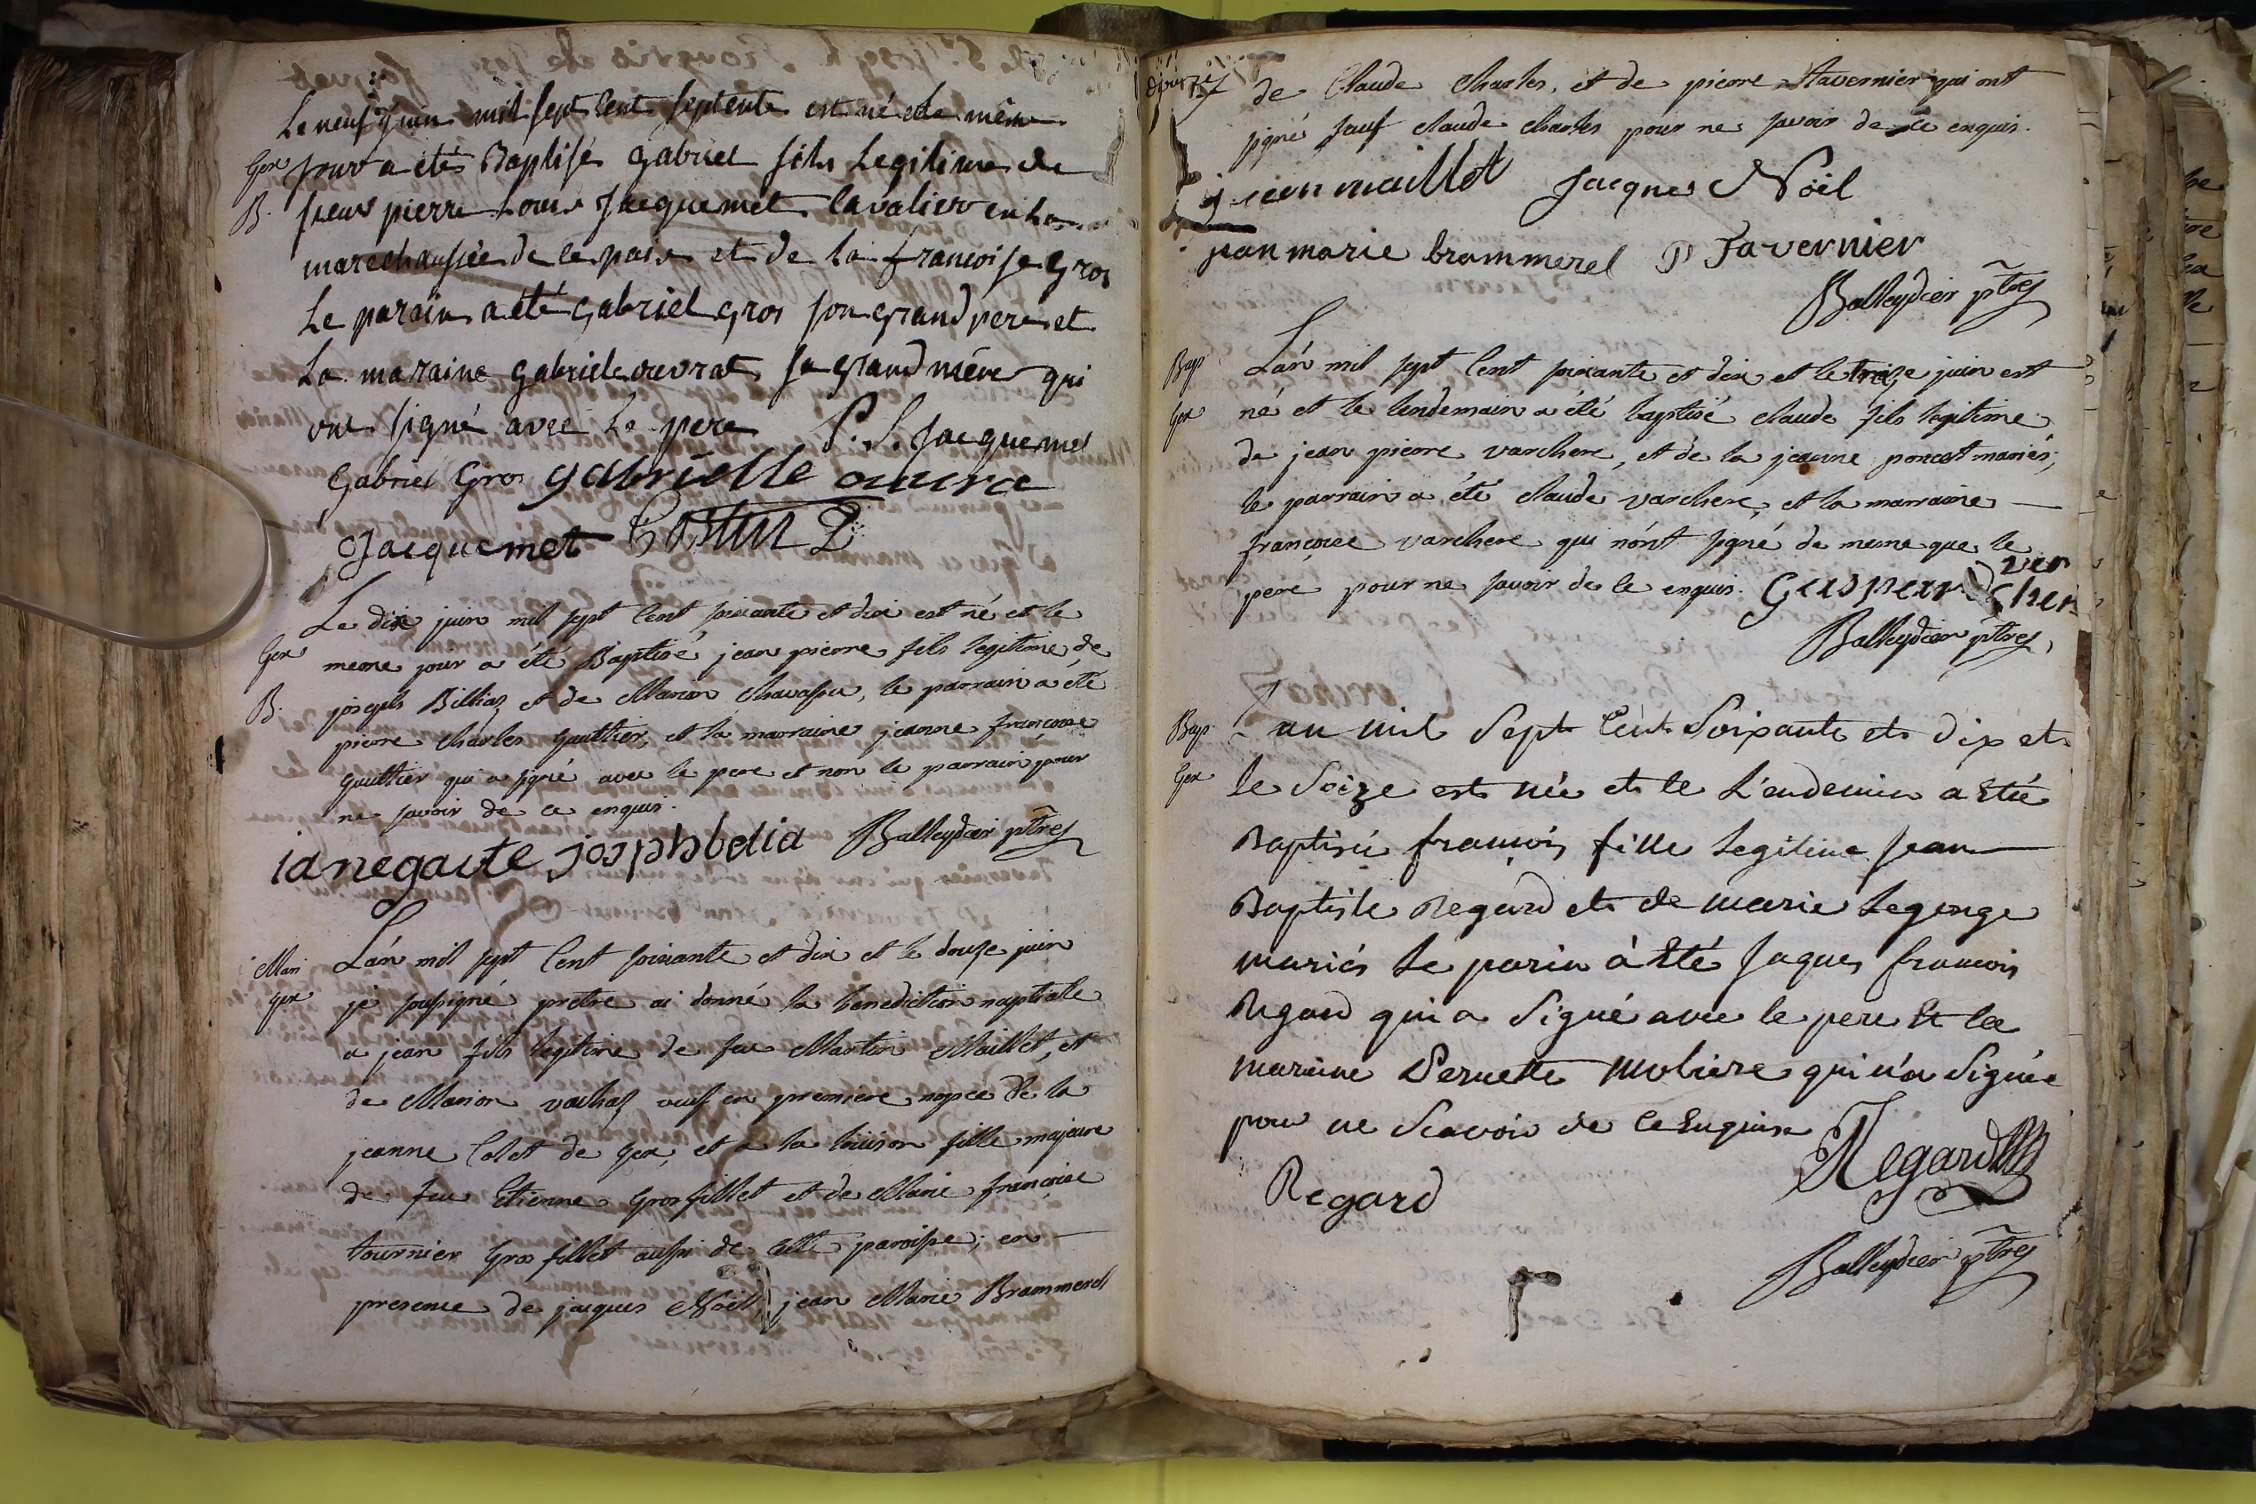 Le neuf juin mil sept cent septente est né et le même
Gex jour a étés Baptisé gabriel fils Legitime de
B. sieur pierre Louis Jacquemet Cavalier en La
marechaussée de ce pais et de La francoise gros
Le parain a été gabriel gros son grand pere et
La maraine gabriele ouvrat sa grand mére qui
ont signé avec Le pere P. L. Jacquemet
Gabriel Gros gabrielle ouura
Jacquemet
Le dix juin mil sept cent soixante et dix est né et le
Gex meme jour a été Baptisé jean pierre fils legitime de
B. joseph Billiaz et de Marion Chavassu, le parrain a été
pierre charles gaultier, et la marraine jeanne francoise
gaultier qui a signé avec le pere et non le parrain pour
ne savoir de ce enquis.
ianegaute josphbelia Balleydier ptre
Mari L'an mil sept cent soixante et dix et le douze juin
gex je soussigné pretre ai donné la benediction nuptiale
a jean fils legitime de feu Martin Maillet, et
de Marion vachaz veuf en premiere nopce de la
jeanne Colet de gex, et a la louison fille majeure
de feu Etienne grosfillet et de Marie francoise
tournier gros fillet aussi de cette paroisse, en
presence de jacques Noël, jean Marie Brammerel
de Claude Charles, et de pierre tavernier qui ont
signé sauf claude charles pour ne savoir de ce enquis.
j iean maillet Jacques Noël
jean marie brammerel P Tavernier
Balleydier ptre
Bap L'an mil sept cent soixante et dix et le treize juin est
Gex né et le lendemain a été baptisé claude fils legitime
de jean pierre varchere, et de la jeanne poncet mariés,
le parrain a été claude varchere, et la marraine
francoise varchere qui n'ont signé de meme que le
pere pour ne savoir de ce enquis. Gaspear ver
cher
Balleydier ptre
Bap L'an mil Sept Cent Soixante et dix et
Gex le Seize est née et le Lendemin a Eté
Baptiséé francois fille Legitime Jean
Baptiste Regard et de marie Legenge
mariés Le parin à Eté Jaques francois
Regard qui a Signé avec le pere Et la
maraine Pernette moliere qui n'a Signée
pour ne Scavoir de Ce Enquise Regard
Regard
Balleydier ptre